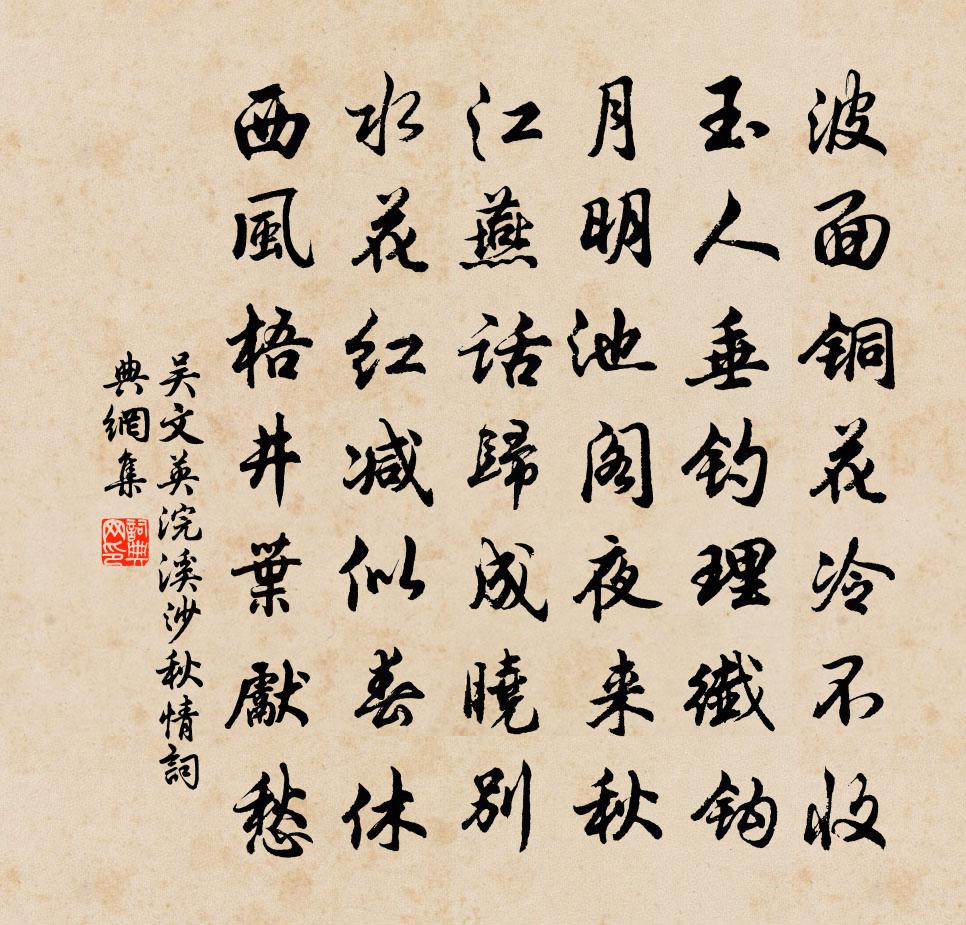 波面铜花冷不收
玉人垂钓理纖钩
月明池阁夜来秋
江燕话歸成曉别
水花红减似春休
西風梧井葉獻愁
吴文英浣溪沙秋情詞
典網集
詞典
网印